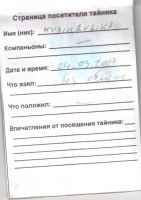 Страница посетителя тайника
Имя (ник):
Компаньоны: —
Дата и время: 24.07.2017
Что взял: без обмена
Что положил: —
Впечатления от посещения тайника: